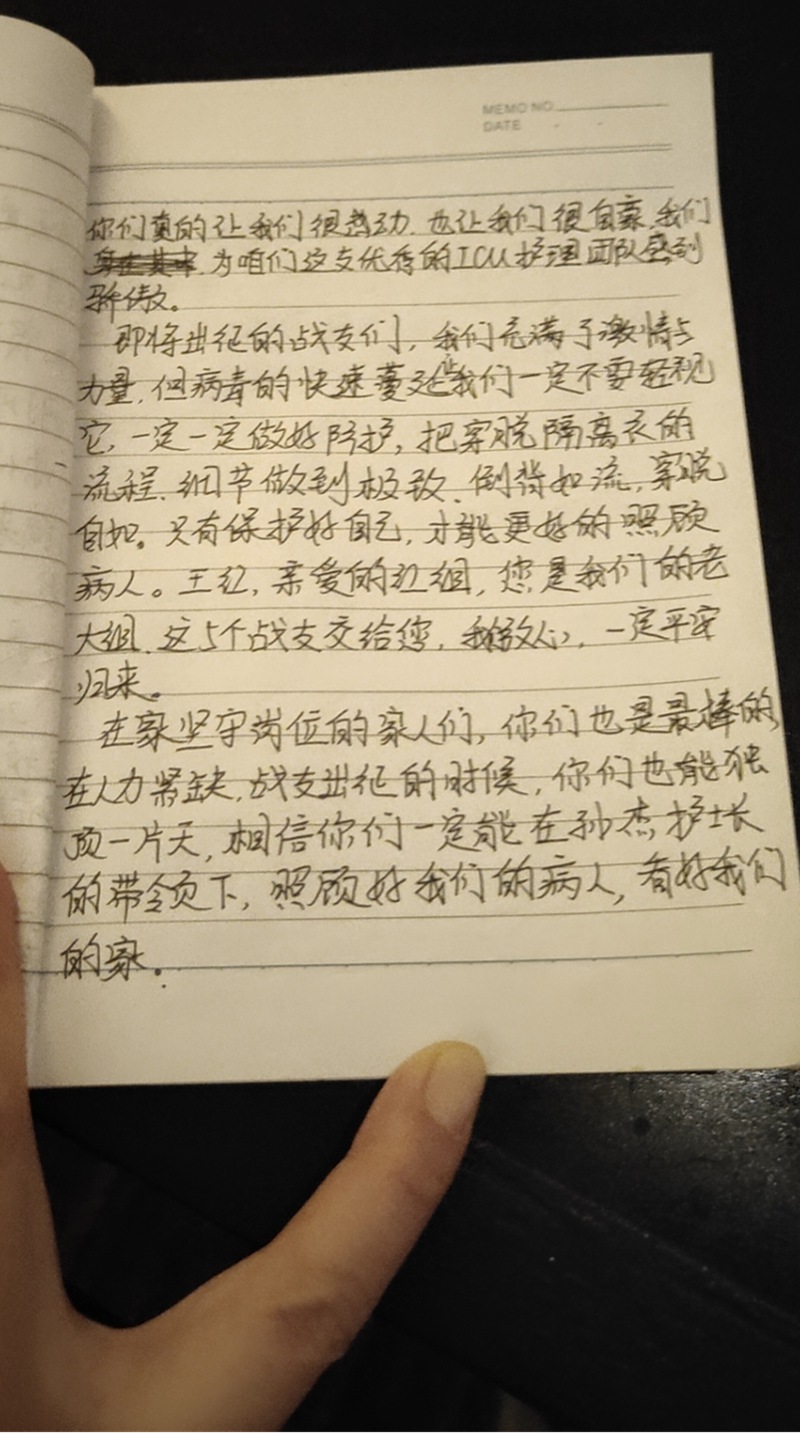 MEMO NO
DATE
你们真的让我们很感动.也让我们很自豪.我们
为咱们这支优秀的ICU护理团队感到
骄傲。
即将出征的战友们,我们充满了激情与
力量,但病毒的快速蔓延让我们一定不要轻视
它,一定一定做好防护,把穿脱隔离衣的
流程.细节做到极致.倒背如流,穿脱
自如。只有保护好自己,才能更好的照顾
病人。王红,亲爱的红组,您是我们的老
大组.这5个战友交给您,我们放心,一定平安
归来。
在家坚守岗位的家人们,你们也是最棒的,
在人力紧缺,战友出征的时候,你们也能独
顶一片天,相信你们一定能在孙杰护士长
的带领下,照顾好我们的病人,看好我们
的家.